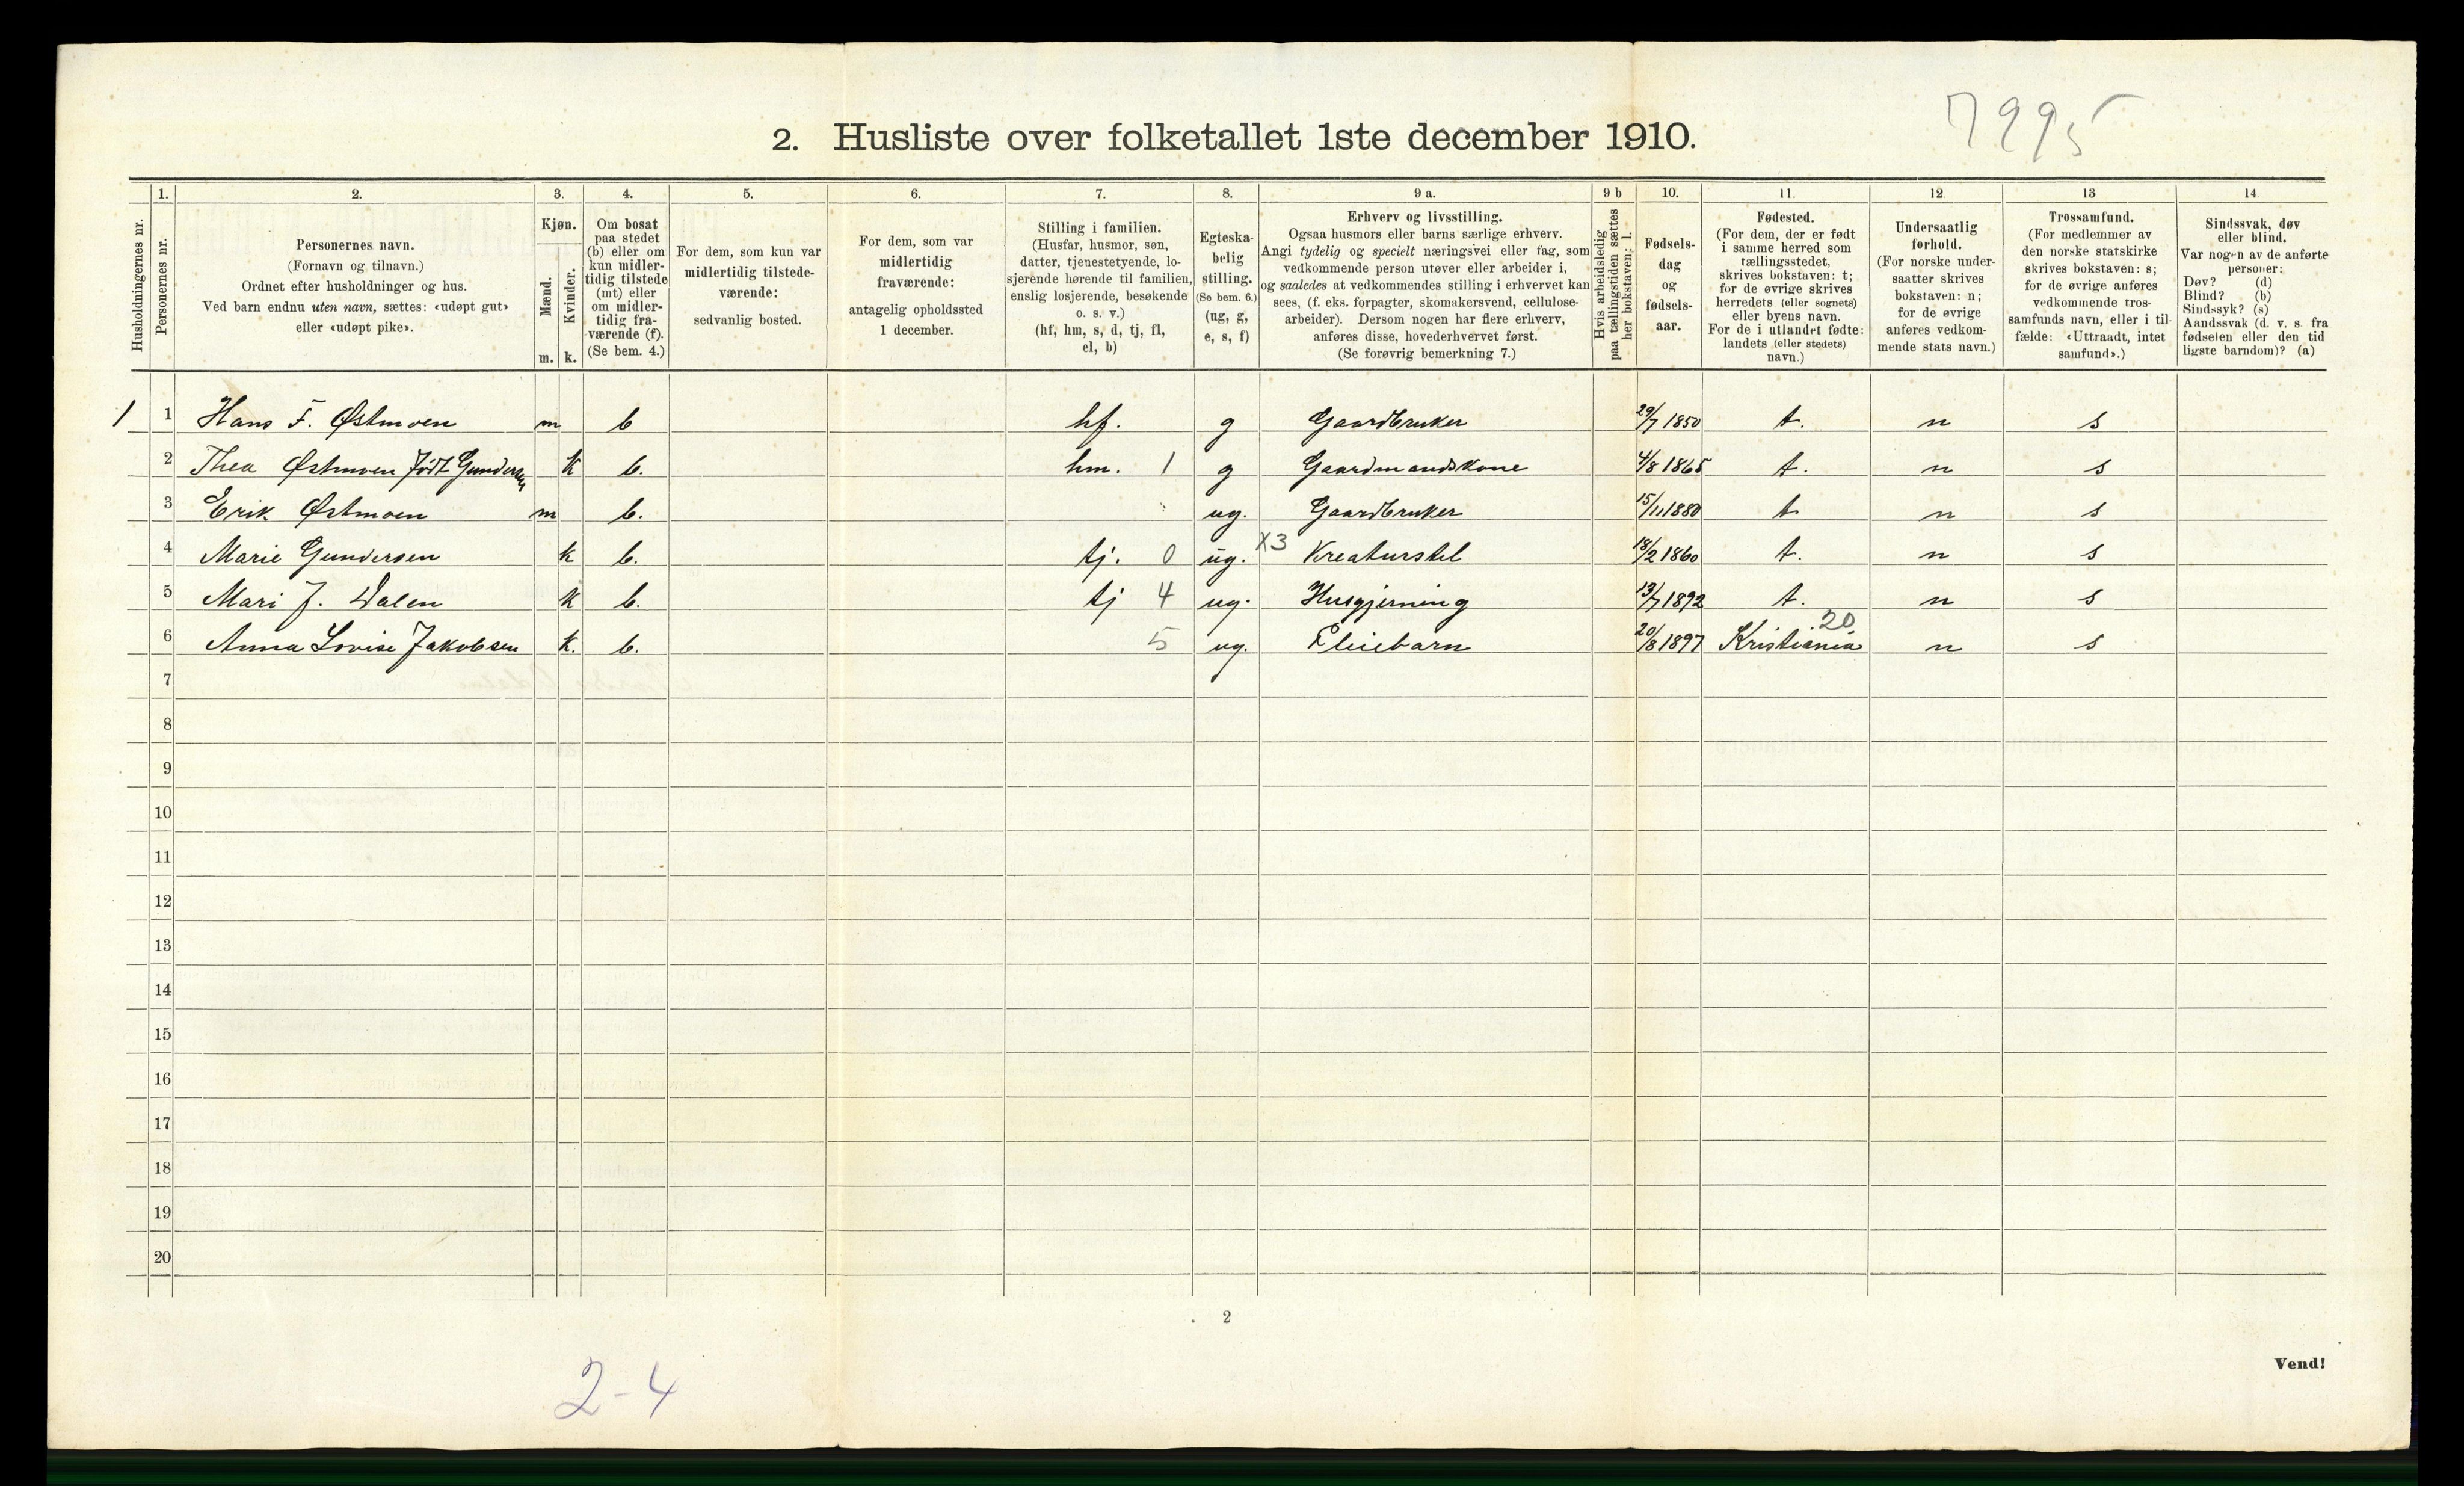 7995
2. Husliste over folketallet 1ste december 1910.
Husholdningernes nr.
1.
Personernes nr.
2.
Personernes navn.
(Fornavn og tilnavn.)
Ordnet efter husholdninger og hus.
Ved barn endnu uten navn, sættes: «udøpt gut»
eller «udøpt pike».
3.
Kjøn.
Mænd.
m.
Kvinder.
k.
4.
Om bosat
paa stedet
(b) eller om
kun midler-
tidig tilstede
(mt) eller
om midler-
tidig fra-
værende (f).
(Se bem. 4.)
5.
For dem, som kun var
midlertidig tilstede-
værende:
sedvanlig bosted.
6.
For dem, som var
midlertidig
fraværende:
antagelig opholdssted
1 december.
7.
Stilling i familien.
(Husfar, husmor, søn,
datter, tjenestetyende, lo-
sjerende hørende til familien,
enslig losjerende, besøkende
o. s. v.)
(hf, hm, s, d, tj, fl,
el, b)
8.
Egteska-
belig
stilling.
(Se bem. 6.)
(ug, g,
e, s, f)
9 a.
Erhverv og livsstilling.
Ogsaa husmors eller barns særlige erhverv.
Angi tydelig og specielt næringsvei eller fag, som
vedkommende person utøver eller arbeider i,
og saaledes at vedkommendes stilling i erhvervet kan
sees, (f. eks. forpagter, skomakersvend, cellulose-
arbeider). Dersom nogen har flere erhverv,
anføres disse, hovederhvervet først.
(Se forøvrig bemerkning 7.)
9 b
Hvis arbeidsledig
paa tællingstiden sættes
her bokstaven: l.
10.
Fødsels-
dag
og
fødsels-
aar.
11.
Fødested.
(For dem, der er født
i samme herred som
tællingsstedet,
skrives bokstaven: t;
for de øvrige skrives
herredets (eller sognets)
eller byens navn.
For de i utlandet fødte:
landets (eller stedets)
navn.)
12.
Undersaatlig
forhold.
(For norske under-
saatter skrives
bokstaven: n;
for de øvrige
anføres vedkom-
mende stats navn.)
13
Trossamfund.
(For medlemmer av
den norske statskirke
skrives bokstaven: s;
for de øvrige anføres
vedkommende tros-
samfunds navn, eller i til-
fælde: «Uttraadt, intet
samfund».)
14
Sindssvak, døv
eller blind.
Var nogen av de anførte
personer:
Døv? (d)
Blind? (b)
Sindssyk? (s)
Aandssvak (d. v. s. fra
fødselen eller den tid
ligste barndom)? (a)
1 1 Hans F. Østmoen m b hf. g Gaardbruker 29/7 1850 t. n s
2 Thea Østmoen født Gundersen k b. hm. 1 g Gaardmandskone 4/8 1865 t. n s
3 Erik Østmoen m b. ug. Gaardbruker 15/11 1880 t n s
4 Marie Gundersen k b. tj. 0 ug. X3 Kreaturstel 18/2 1860 t. n s
5 Mari J. Dalen k b. tj 4 ug. Husgjerning 13/7 1892 t. n s
20
6 Anna Lovise Jakobsen k. b. 5 ug. Pleiebarn 20/8 1897 Kristiania n s
7
8
9
10
11
12
13
14
15
16
17
18
19
20
2
Vend!
2-4